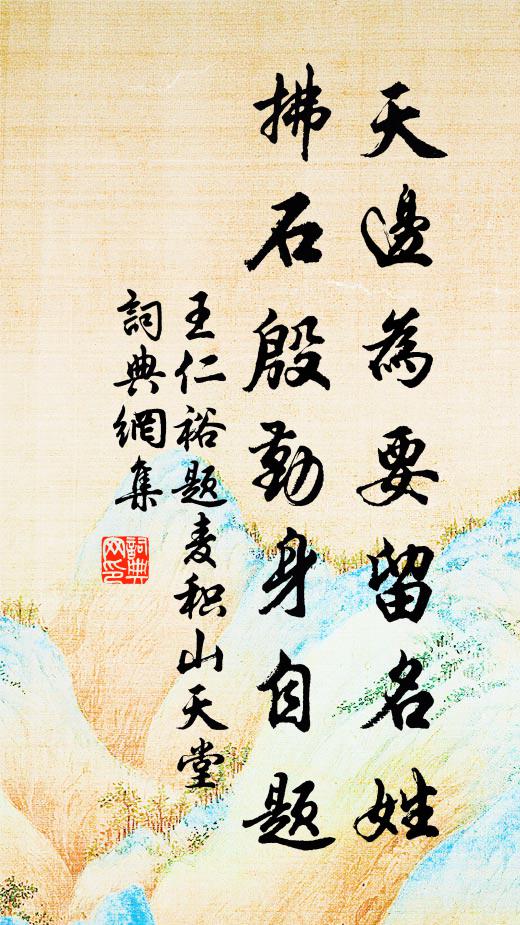 天邊為要留名姓
拂石殷勤身自題
王仁裕題麦积山天堂
詞典網集
詞典網印